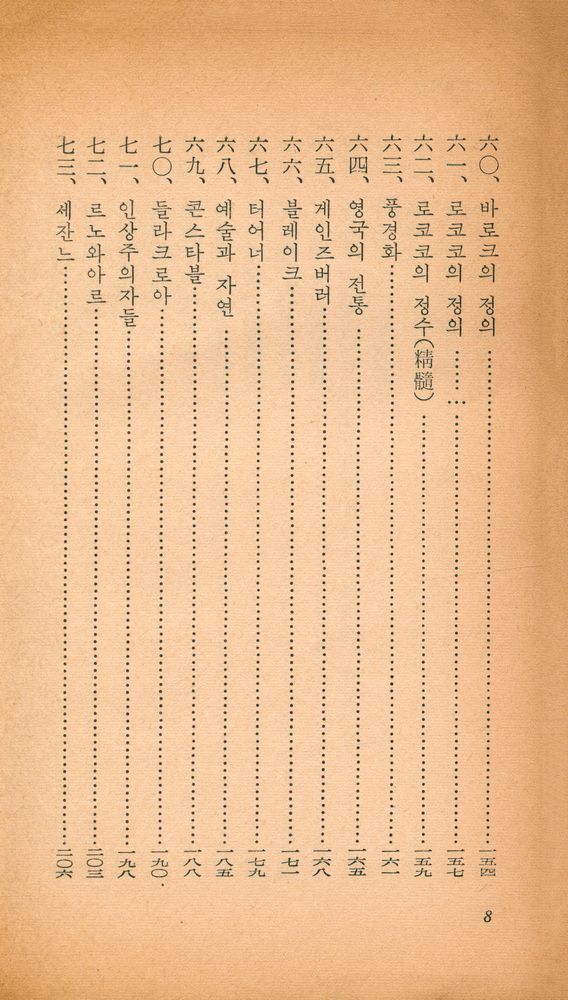 六〇、 바로크의 정의 …… 一五四
六一、 로코코의 정의 …… 一五七
六二、 로코코의 정수(精髓) …… 一五九
六三、 풍경화 …… 一六一
六四、 영국의 전통 …… 一六五
六五、 게인즈버러 …… 一六八
六六、 블레이크 …… 一七一
六七、 터어너 …… 一七九
六八、 예술과 자연 …… 一八五
六九、 콘스타블 …… 一八八
七〇、 들라크로아 …… 一九〇
七一、 인상주의자들 …… 一九八
七二、 르노와아르 …… 二〇三
七三、 세잔느 …… 二〇六
8